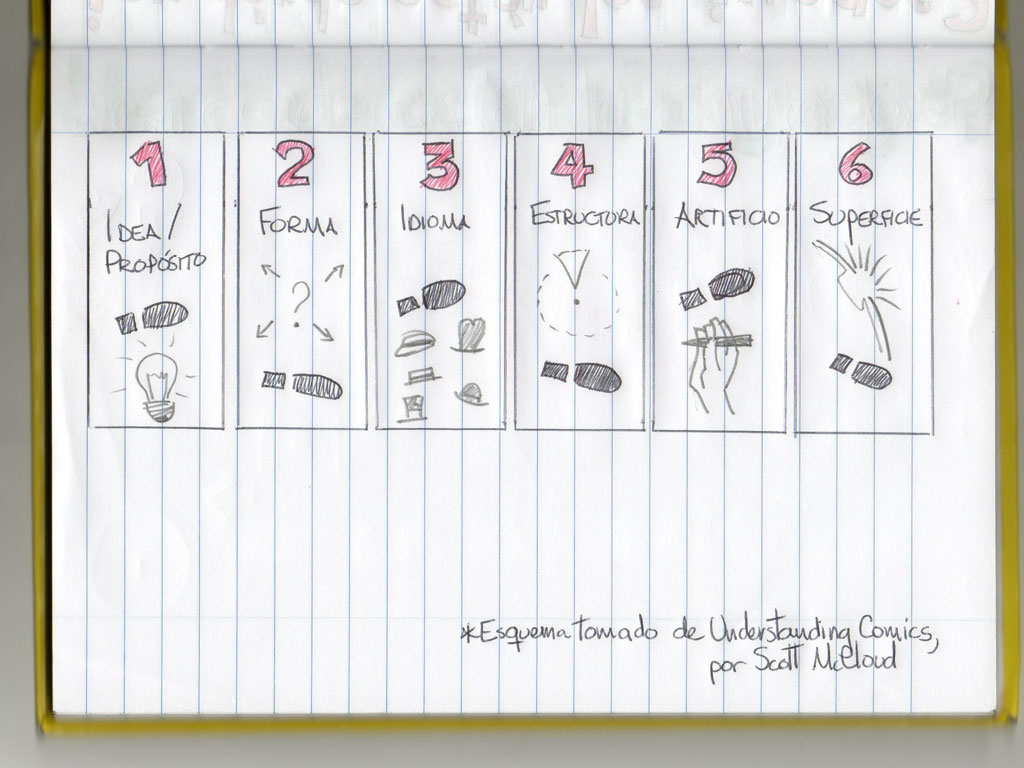 1
IDEA/
PROPÓSITO
2
FORMA
?
3
IDIOMA
4
ESTRUCTURA
5
ARTIFICIO
6
SUPERFICIE
*Esquema tomado de Understanding Comics,
por Scott McCloud